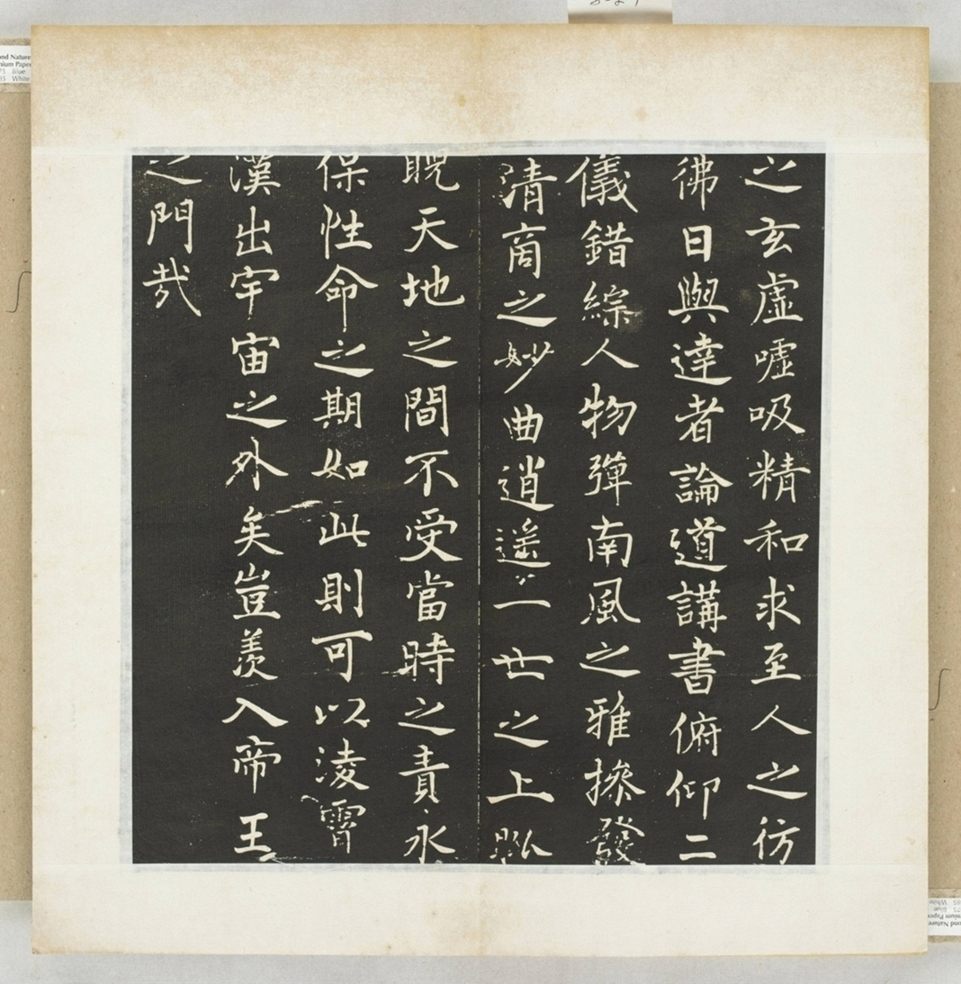 之玄虛噓吸精和求至人之彷
彿日與達者論道講書俯仰二
儀錯綜人物彈南風之雅操發
清商之妙曲逍遙一世之上
睨天地之間不受當時之責永
保性命之期如此則可以淩霄
漢出宇宙之外矣豈羨入帝王
之門哉